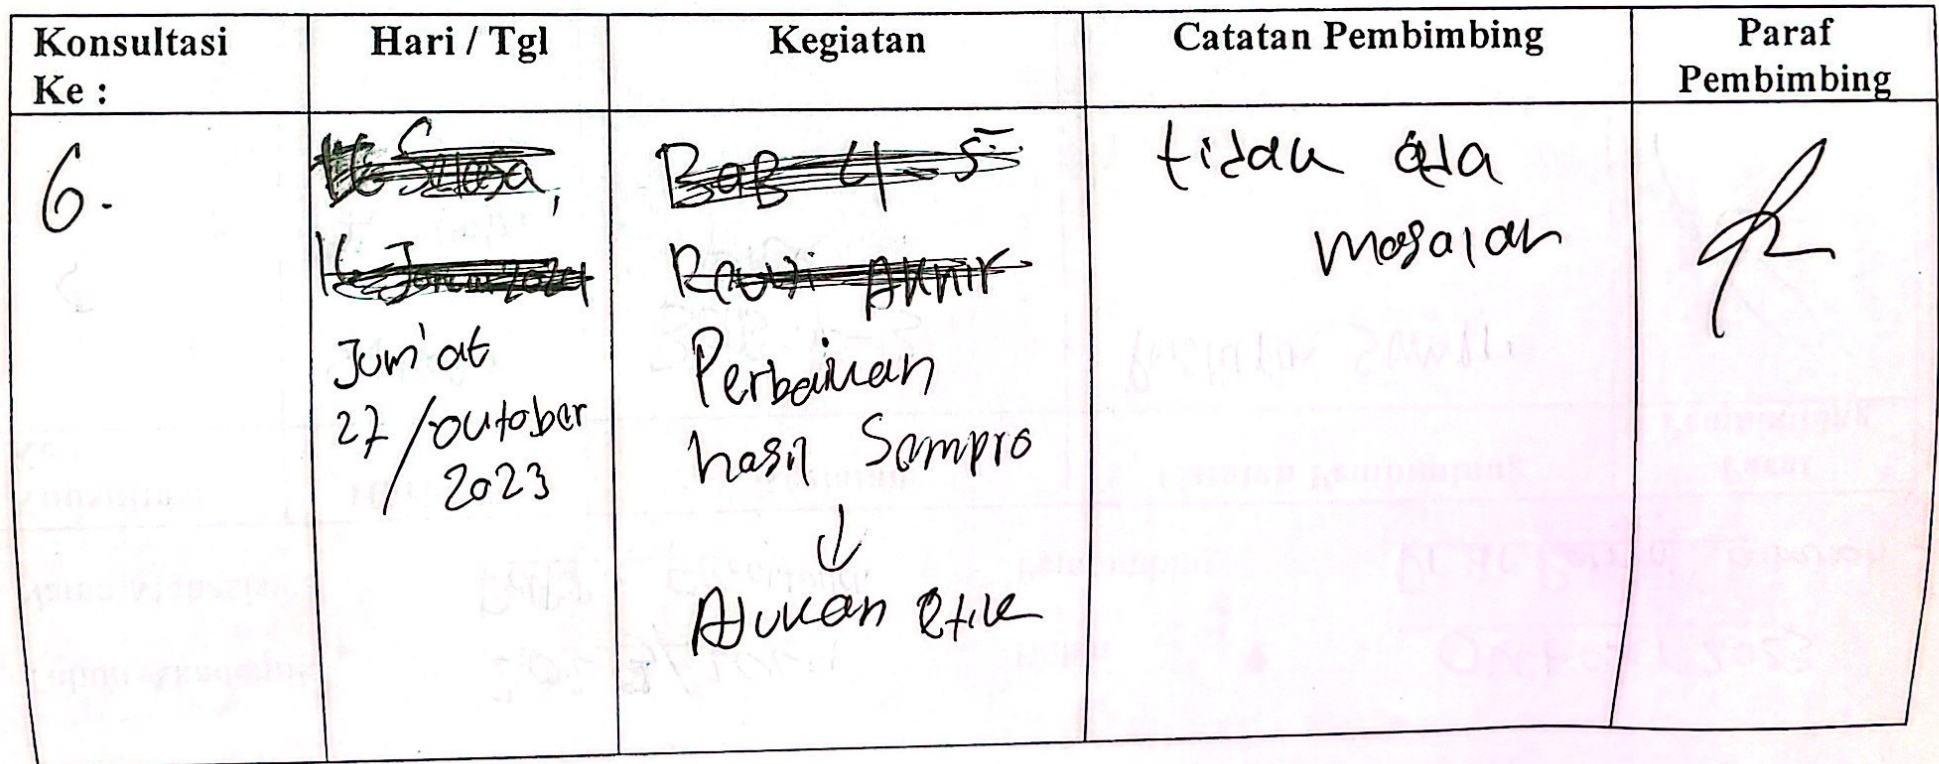 Konsultasi Ke :
Hari / Tgl
Kegiatan
Catatan Pembimbing
Paraf Pembimbing
6.
Selasa,
Jum'at
27 / Oktober
2023
BAB 4 - 5
Akhir
Perbaikan
hasil Sempro
↓
Ajukan Etik
tidak ada
masalah